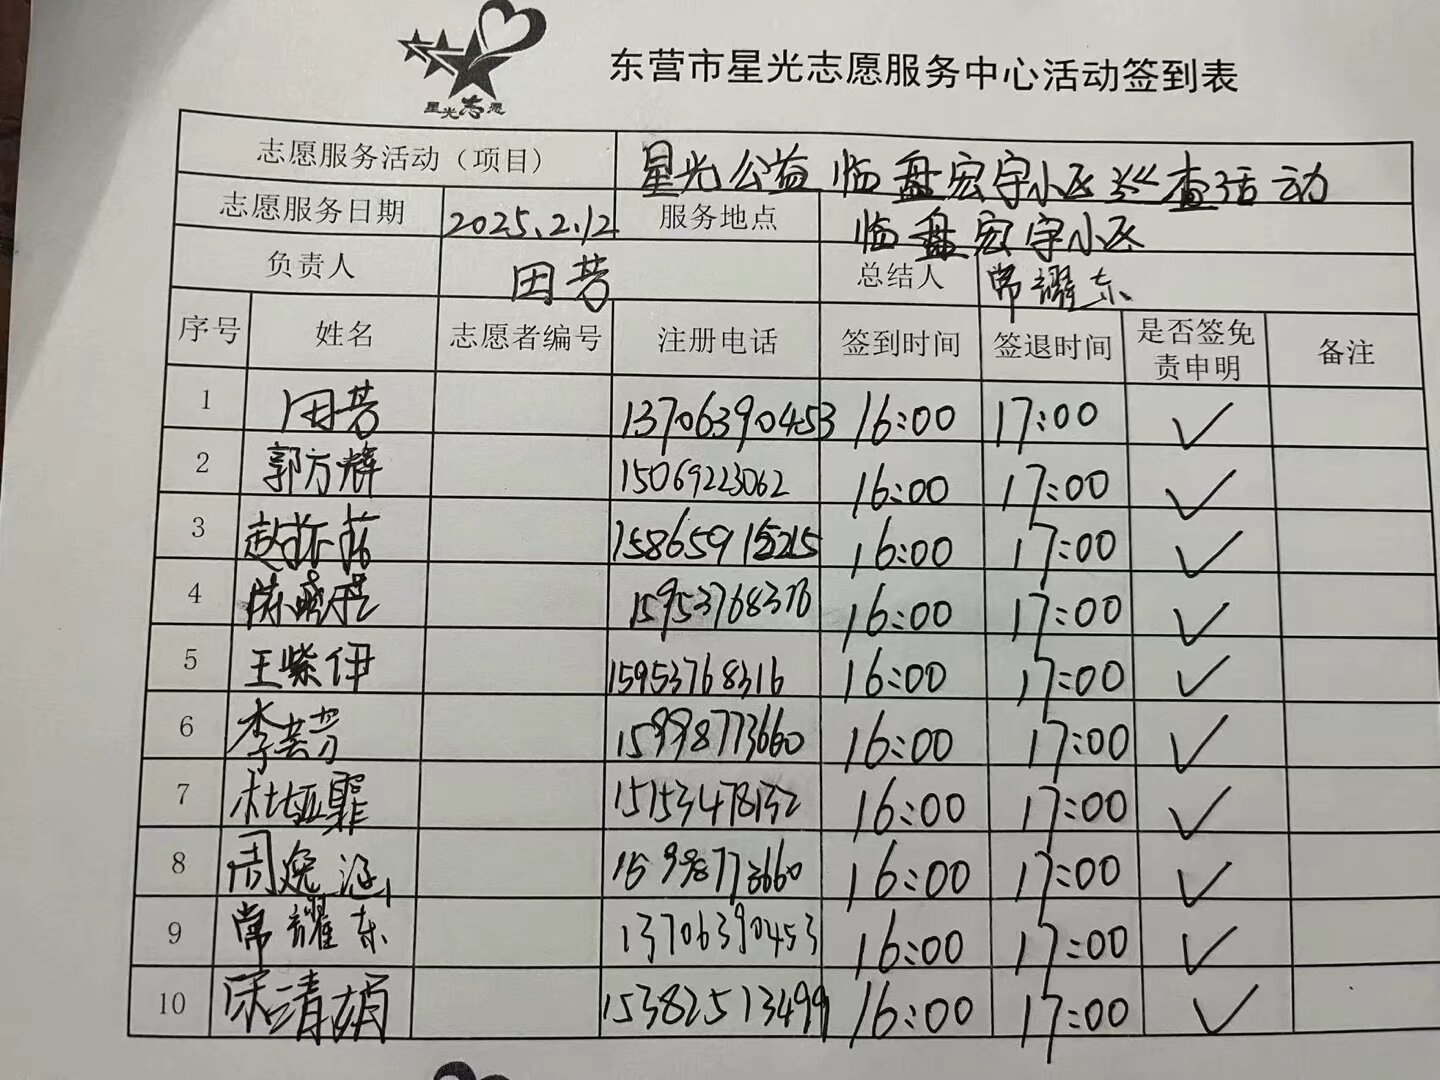 星光志愿
东营市星光志愿服务中心活动签到表
志愿服务活动（项目） 星光公益临盘宏宇小区巡查活动
志愿服务日期 2025.2.12 服务地点 临盘宏宇小区
负责人 田芳 总结人 常耀东
序号 姓名 志愿者编号 注册电话 签到时间 签退时间 是否签免责申明 备注
1 田芳 13706390453 16:00 17:00 ✓
2 郭方辉 15069223062 16:00 17:00 ✓
3 赵 16:00 17:00 ✓
4 陈 16:00 17:00 ✓
5 王紫伊 15953768316 16:00 17:00 ✓
6 李芸芳 15998773660 16:00 17:00 ✓
7 杜亚霏 15153478132 16:00 17:00 ✓
8 周逸涵 15998773660 16:00 17:00 ✓
9 常耀东 13706390453 16:00 17:00 ✓
10 宋清娟 15382513499 16:00 17:00 ✓